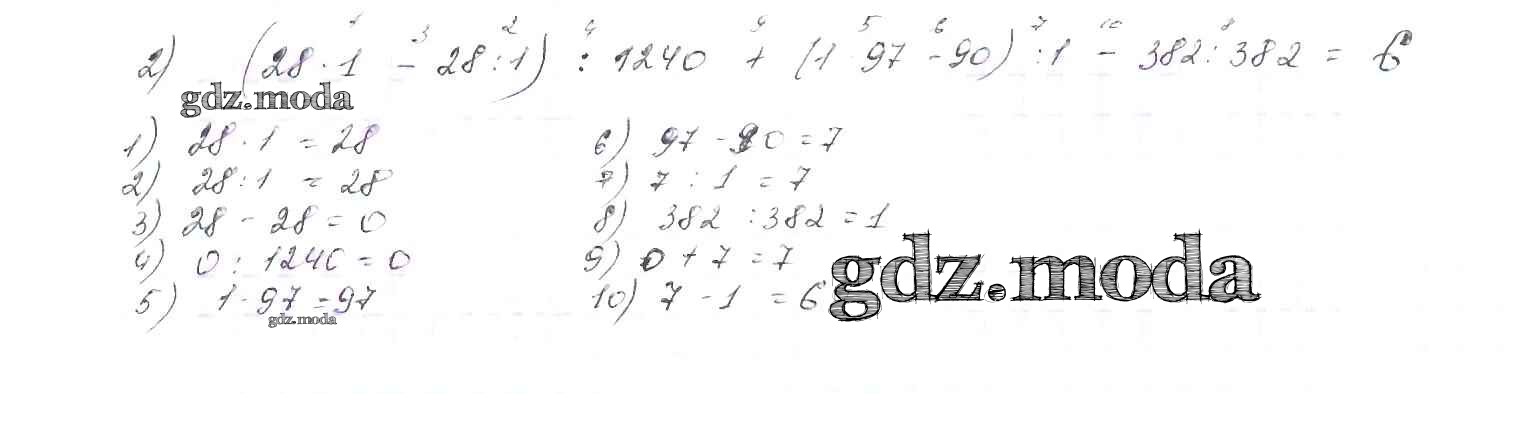 1 3 2 4 9 5 6 7 10 8
2) (28 · 1 - 28 : 1) : 1240 + (1 · 97 - 90) : 1 - 382 : 382 = 6
gdz.moda
1) 28 · 1 = 28
2) 28 : 1 = 28
3) 28 - 28 = 0
4) 0 : 1240 = 0
5) 1 · 97 = 97
gdz.moda
6) 97 - 90 = 7
7) 7 : 1 = 7
8) 382 : 382 = 1
9) 0 + 7 = 7
10) 7 - 1 = 6
gdz.moda